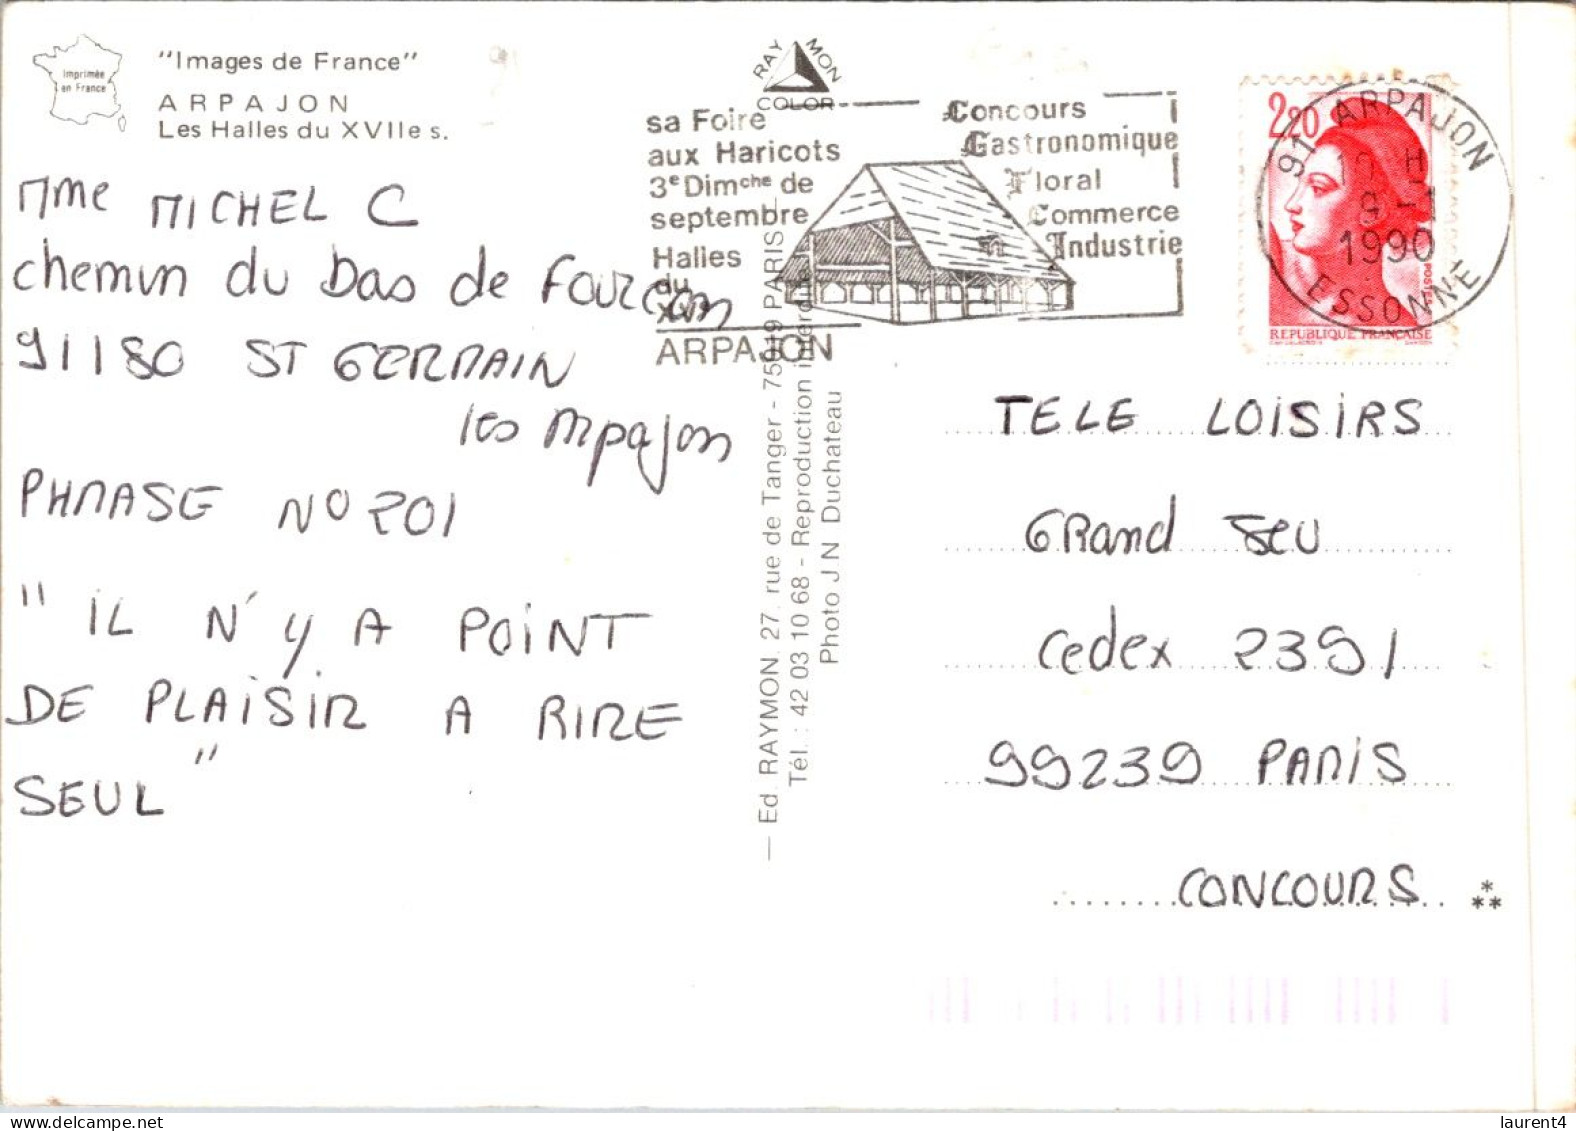 Imprimée
en France
"Images de France"
ARPAJON
Les Halles du XVIIe s.
Mme MICHEL C
chemin du bas de
91180 ST GERMAIN
les Arpajon
PHRASE N° 201
"IL N'Y A POINT
DE PLAISIR A RIRE
SEUL"
RAYMON
COLOR
sa Foire
aux Haricots
3e Dimche de
septembre
Halles
du
ARPAJON
Concours
Gastronomique
Floral
Commerce
Industrie
Ed. RAYMON. 27. rue de Tanger - 75019 PARIS
Tél. : 42 03 10 68 - Reproduction interdite
Photo J.N Duchateau
2,20
POSTES
REPUBLIQUE FRANÇAISE
91 ARPAJON
H
9 - 1
1990
ESSONNE
TELE LOISIRS
GRand JEU
Cedex 2391
99239 PARIS
CONCOURS
laurent4